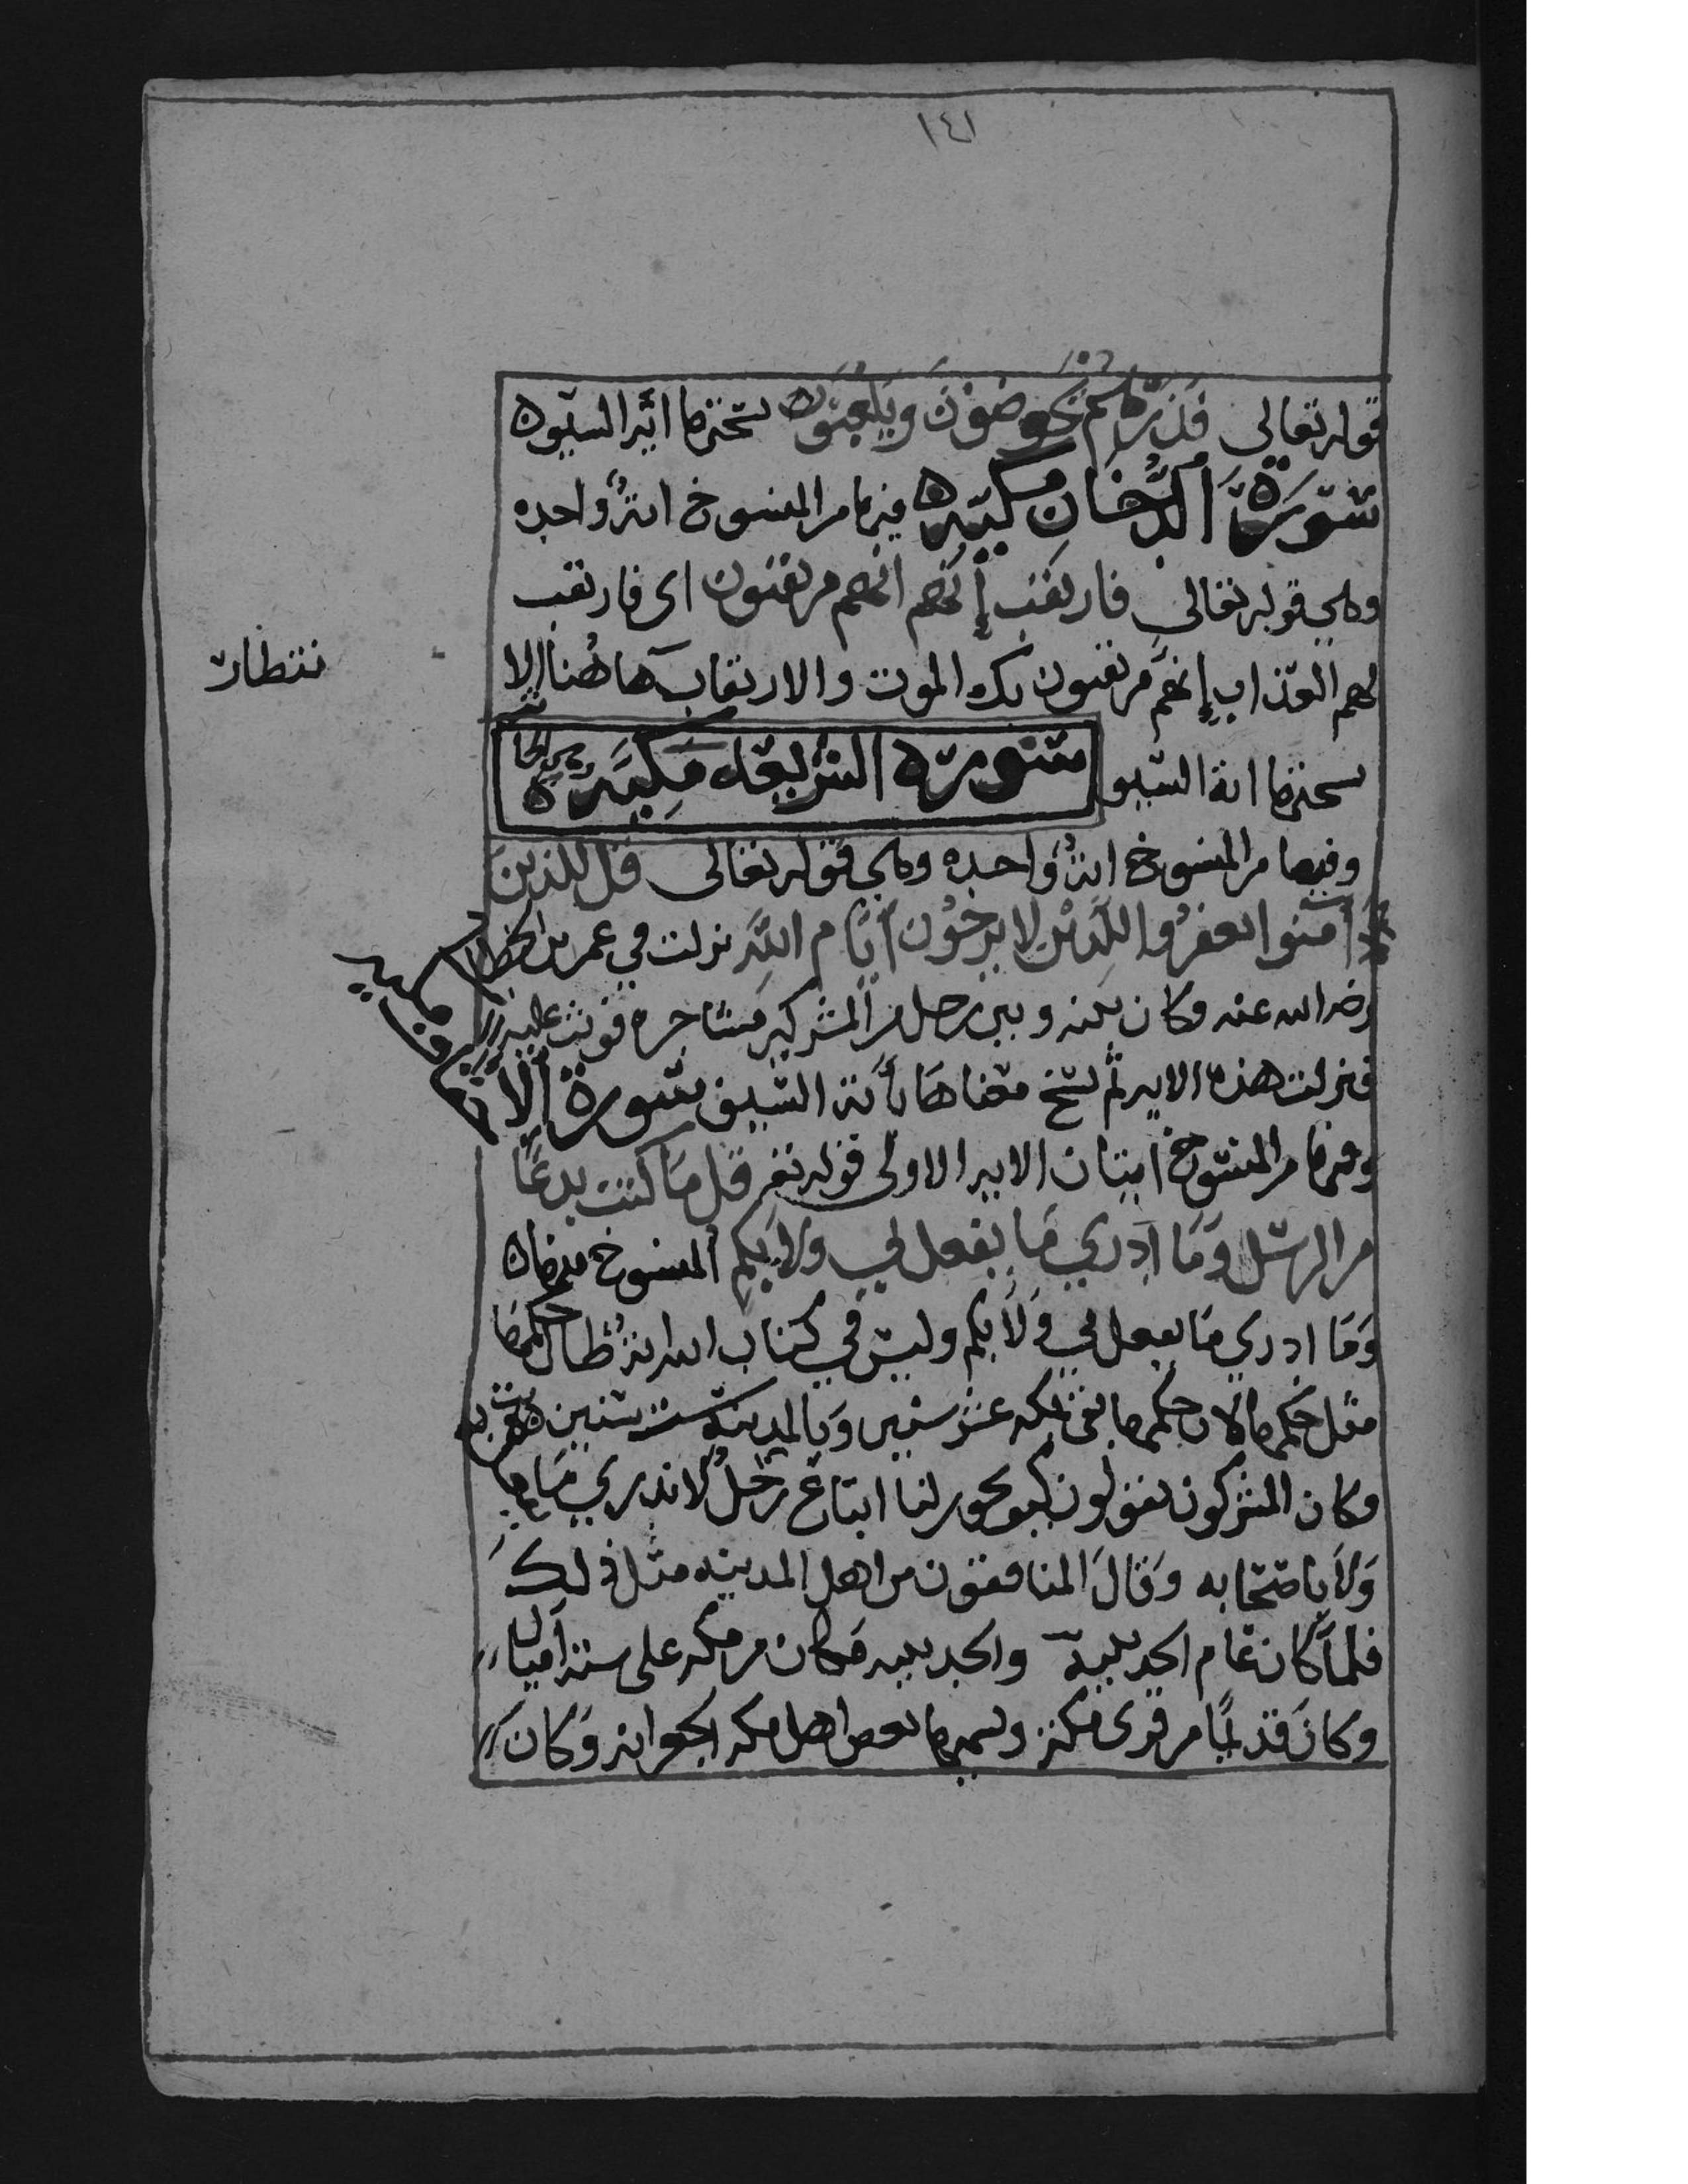 ١٤١
قوله تعالى فذرهم يخوضون ويلعبون نسختها اية السيوف
سورة الدخان مكيه فيها من المنسوخ اية واحده
وهي قوله تعالى فارتقب إنهم انهم مرتقبون اي فارتقب
لهم العذاب إنهم مرتقبون بك الموت والارتقاب هاهنا الا
نتظار
نسختها اية السيف سورة الشريعه مكية
وفيها من المنسوخ اية واحده وهي قوله تعالى قل للذين
آمنوا يغفروا للذين لا يرجون أيام الله نزلت في عمر بن الخطاب
رضي الله عنه وكان بينه وبين رجل من المشركين مشاجره فوثب عليه
فنزلت هذه الايه ثم نسخ معناها بأية السيف سورة الأحقاف مكيه
وفيها من المنسوخ ايتان الايه الاولى قوله تع قل ما كنت بدعًا
من الرسل وما أدري ما يفعل بي ولا بكم المنسوخ منها
وما ادري ما يفعل بي ولا بكم وليس في كتاب الله اية طال حكمها
مثل حكمها لان حكمها بقى بمكه عشر سنين وبالمدينة ست سنين
وكان المشركون يقولون كيف يجوز لنا اتباع رجل لا ندري ما يفعل به
ولا باصحابه وقال المنافقون من اهل المدينه مثل ذلك
فلما كان عام الحديبية والحديبيه مكان من مكه على ستة أميال
وكان قديمًا من قرى مكة ويسميها بعض اهل مكه الجعرانه وكان